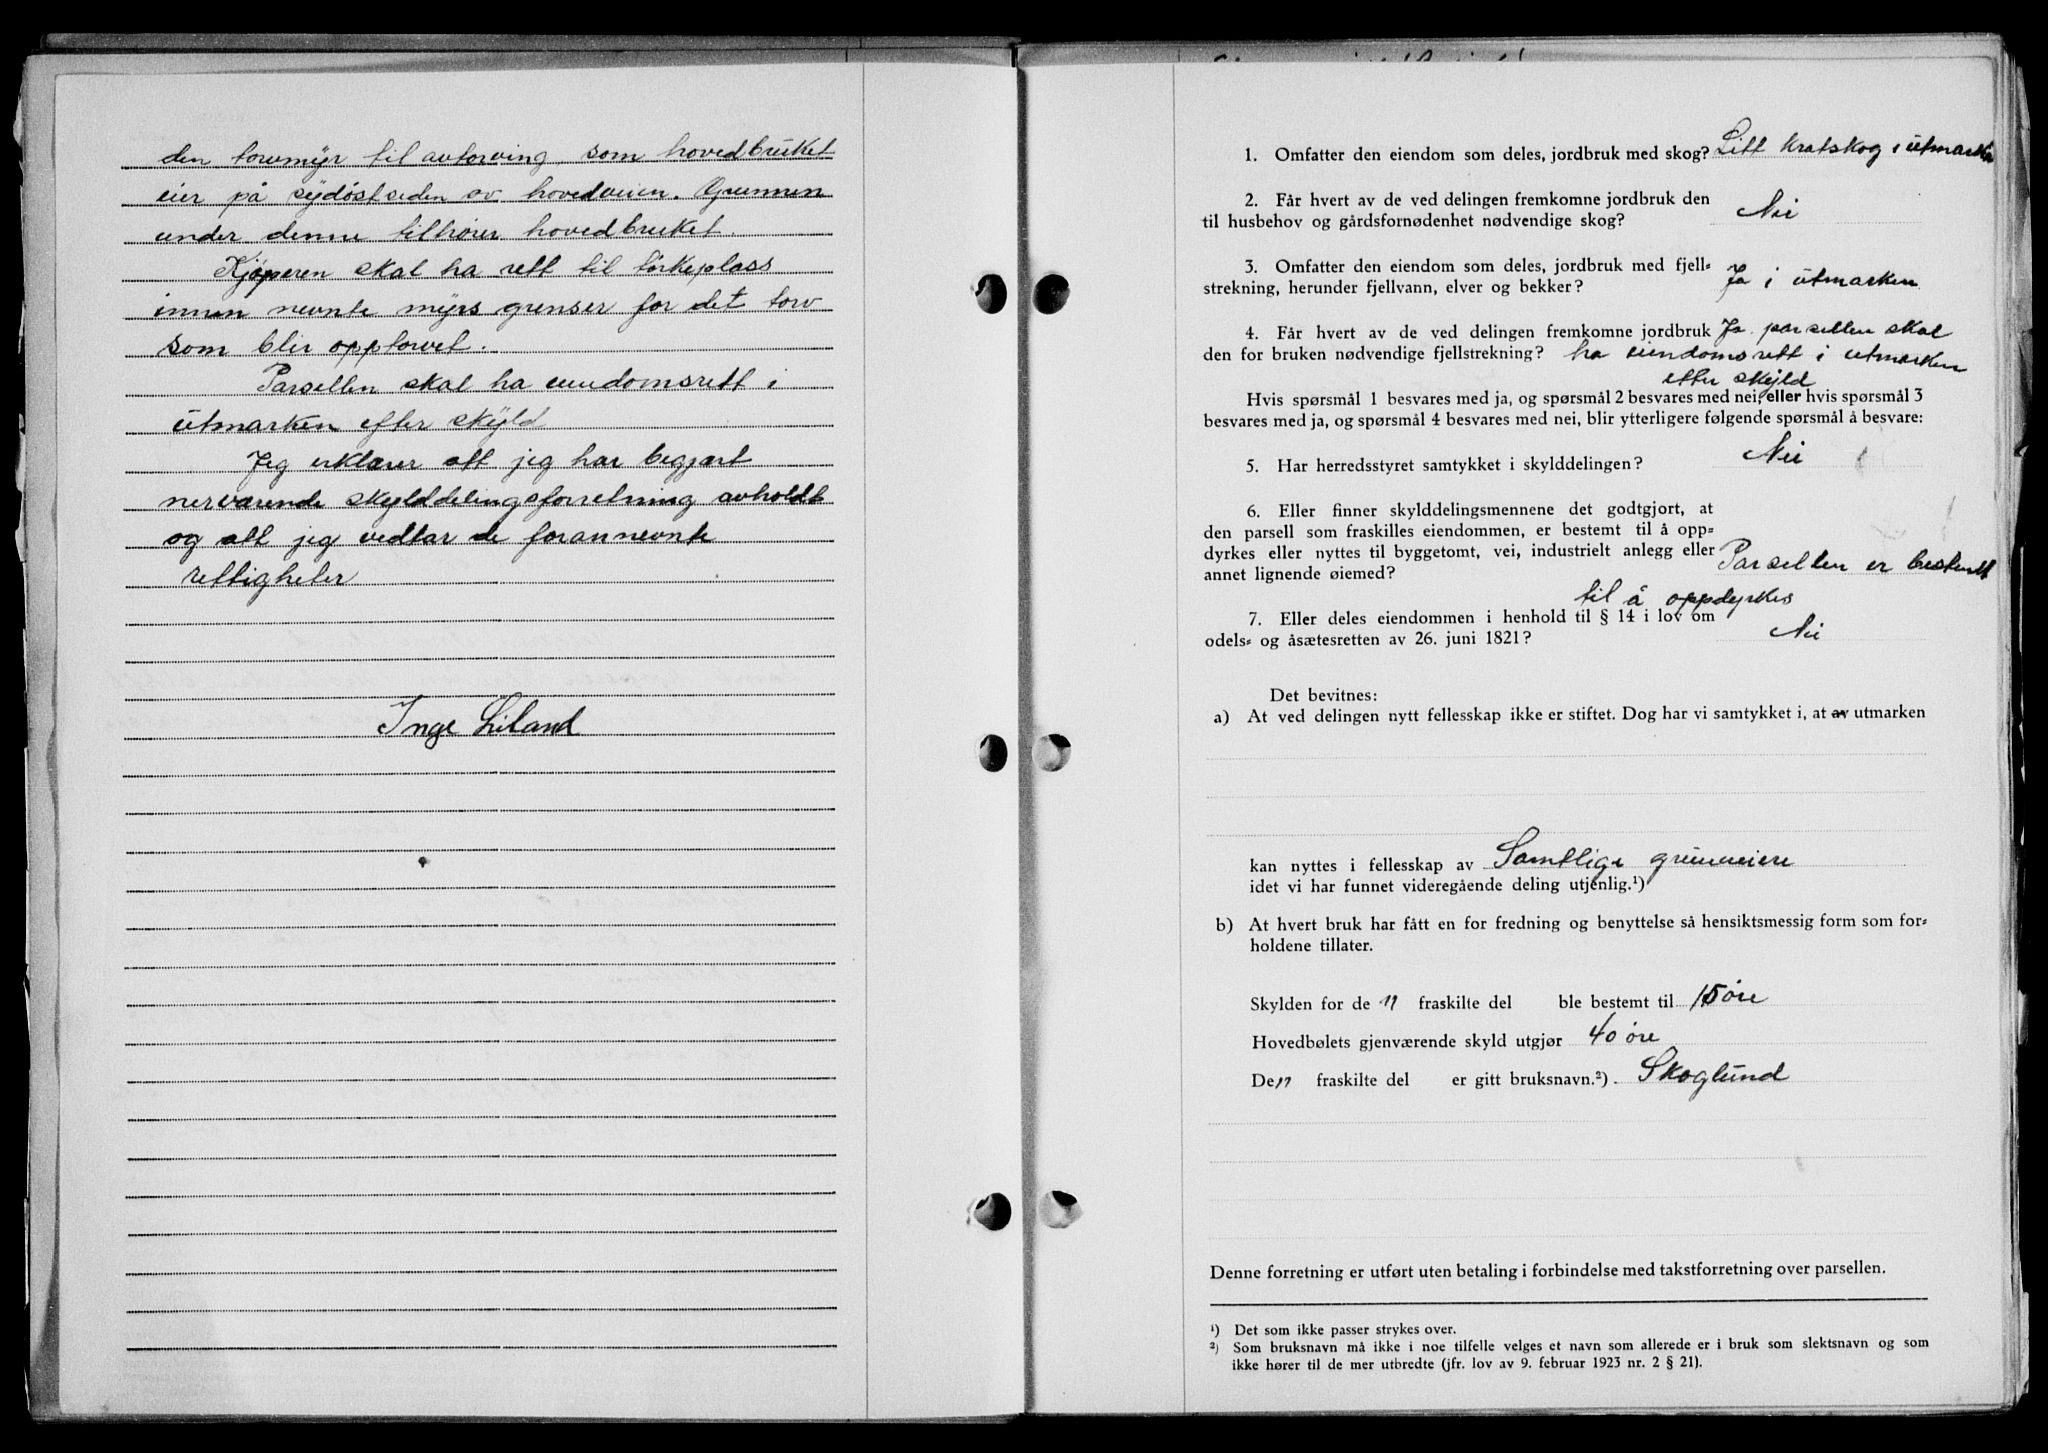 den torvmyr til avtorving, som hovedbruket
eier på sydøstsiden av hovedveien. Grunnen
under denne tilhører hovedbruket.
Kjøperen skal ha rett til tørkeplass
innen nevnte myrs grenser for det torv
som blir opptorvet.
Parsellen skal ha eiendomsrett i
utmarken efter skyld
Jeg erklærer att jeg har begjært
nerværende skylddelingsforretning avholdt
og att jeg vedtar de forannevnte
rettigheter
Inge Liland
1. Omfatter den eiendom som deles, jordbruk med skog? Litt kratskog i utmarken
2. Får hvert av de ved delingen fremkomne jordbruk den
til husbehov og gårdsfornødenhet nødvendige skog? Nei
3. Omfatter den eiendom som deles, jordbruk med fjell-
strekning, herunder fjellvann, elver og bekker? Ja i utmarken
4. Får hvert av de ved delingen fremkomne jordbruk Ja parsellen skal
den for bruken nødvendige fjellstrekning? ha eiendomsrett i utmarken
etter skyld
Hvis spørsmål 1 besvares med ja, og spørsmål 2 besvares med nei, eller hvis spørsmål 3
besvares med ja, og spørsmål 4 besvares med nei, blir ytterligere følgende spørsmål å besvare:
5. Har herredsstyret samtykket i skylddelingen? Nei
6. Eller finner skylddelingsmennene det godtgjort, at
den parsell som fraskilles eiendommen, er bestemt til å opp-
dyrkes eller nyttes til byggetomt, vei, industrielt anlegg eller
annet lignende øiemed? Parsellen er bestemt
til å oppdyrkes
7. Eller deles eiendommen i henhold til § 14 i lov om
odels- og åsætesretten av 26. juni 1821? Nei
Det bevitnes:
a) At ved delingen nytt fellesskap ikke er stiftet. Dog har vi samtykket i, at av utmarken
kan nyttes i fellesskap av Samtlige grunneiere
idet vi har funnet videregående deling utjenlig.¹)
b) At hvert bruk har fått en for fredning og benyttelse så hensiktsmessig form som for-
holdene tillater.
Skylden for de n fraskilte del ble bestemt til 15 øre
Hovedbølets gjenværende skyld utgjør 40 øre
De n fraskilte del er gitt bruksnavn.²) Skoglund
Denne forretning er utført uten betaling i forbindelse med takstforretning over parsellen.
¹) Det som ikke passer strykes over.
²) Som bruksnavn må ikke i noe tilfelle velges et navn som allerede er i bruk som slektsnavn og som
ikke hører til de mer utbredte (jfr. lov av 9. februar 1923 nr. 2 § 21).